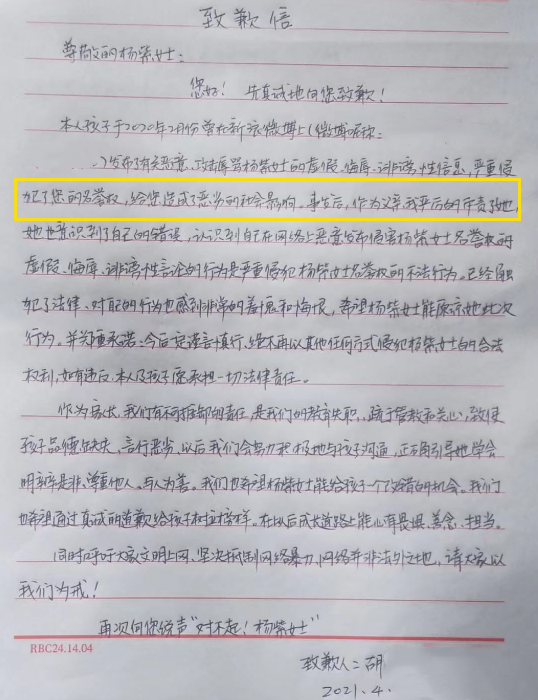 致歉信
尊敬的杨紫女士:
您好! 先真诚地向您致歉!
本人孩子于2020年2月份曾在新浪微博上(微博昵称:
)发布了有关恶意、攻击辱骂杨紫女士的虚假、侮辱、诽谤性信息,严重侵
犯了您的名誉权,给您造成了恶劣的社会影响。事发后,作为父亲我严厉的斥责了她,
她也意识到了自己的错误,认识到自己在网络上恶意发布侵害杨紫女士名誉权的
虚假、侮辱、诽谤性言论的行为是严重侵犯杨紫女士名誉权的不法行为。已经触
犯了法律、对自己的行为也感到非常的羞愧和悔恨,希望杨紫女士能原谅她此次
行为。并郑重承诺:今后定谨言慎行、绝不再以其他任何方式侵犯杨紫女士的合法
权利,如有违反,本人及孩子愿承担一切法律责任。
作为家长,我们有不可推卸的责任,是我们的教育失职、疏于管教和关心,致使
孩子品德缺失、言行恶劣,以后我们会努力积极地与孩子沟通,正确引导她学会
明辨是非、尊重他人、与人为善。我们也希望杨紫女士能给孩子一个改错的机会。我们
也希望通过真诚的道歉给孩子树立榜样。在以后成长道路上能心有畏惧、善念、担当。
同时呼吁大家文明上网、坚决抵制网络暴力,网络并非法外之地,请大家以
我们为戒!
再次向您说声“对不起!杨紫女士”
RBC24.14.04
致歉人:胡
2021.4.